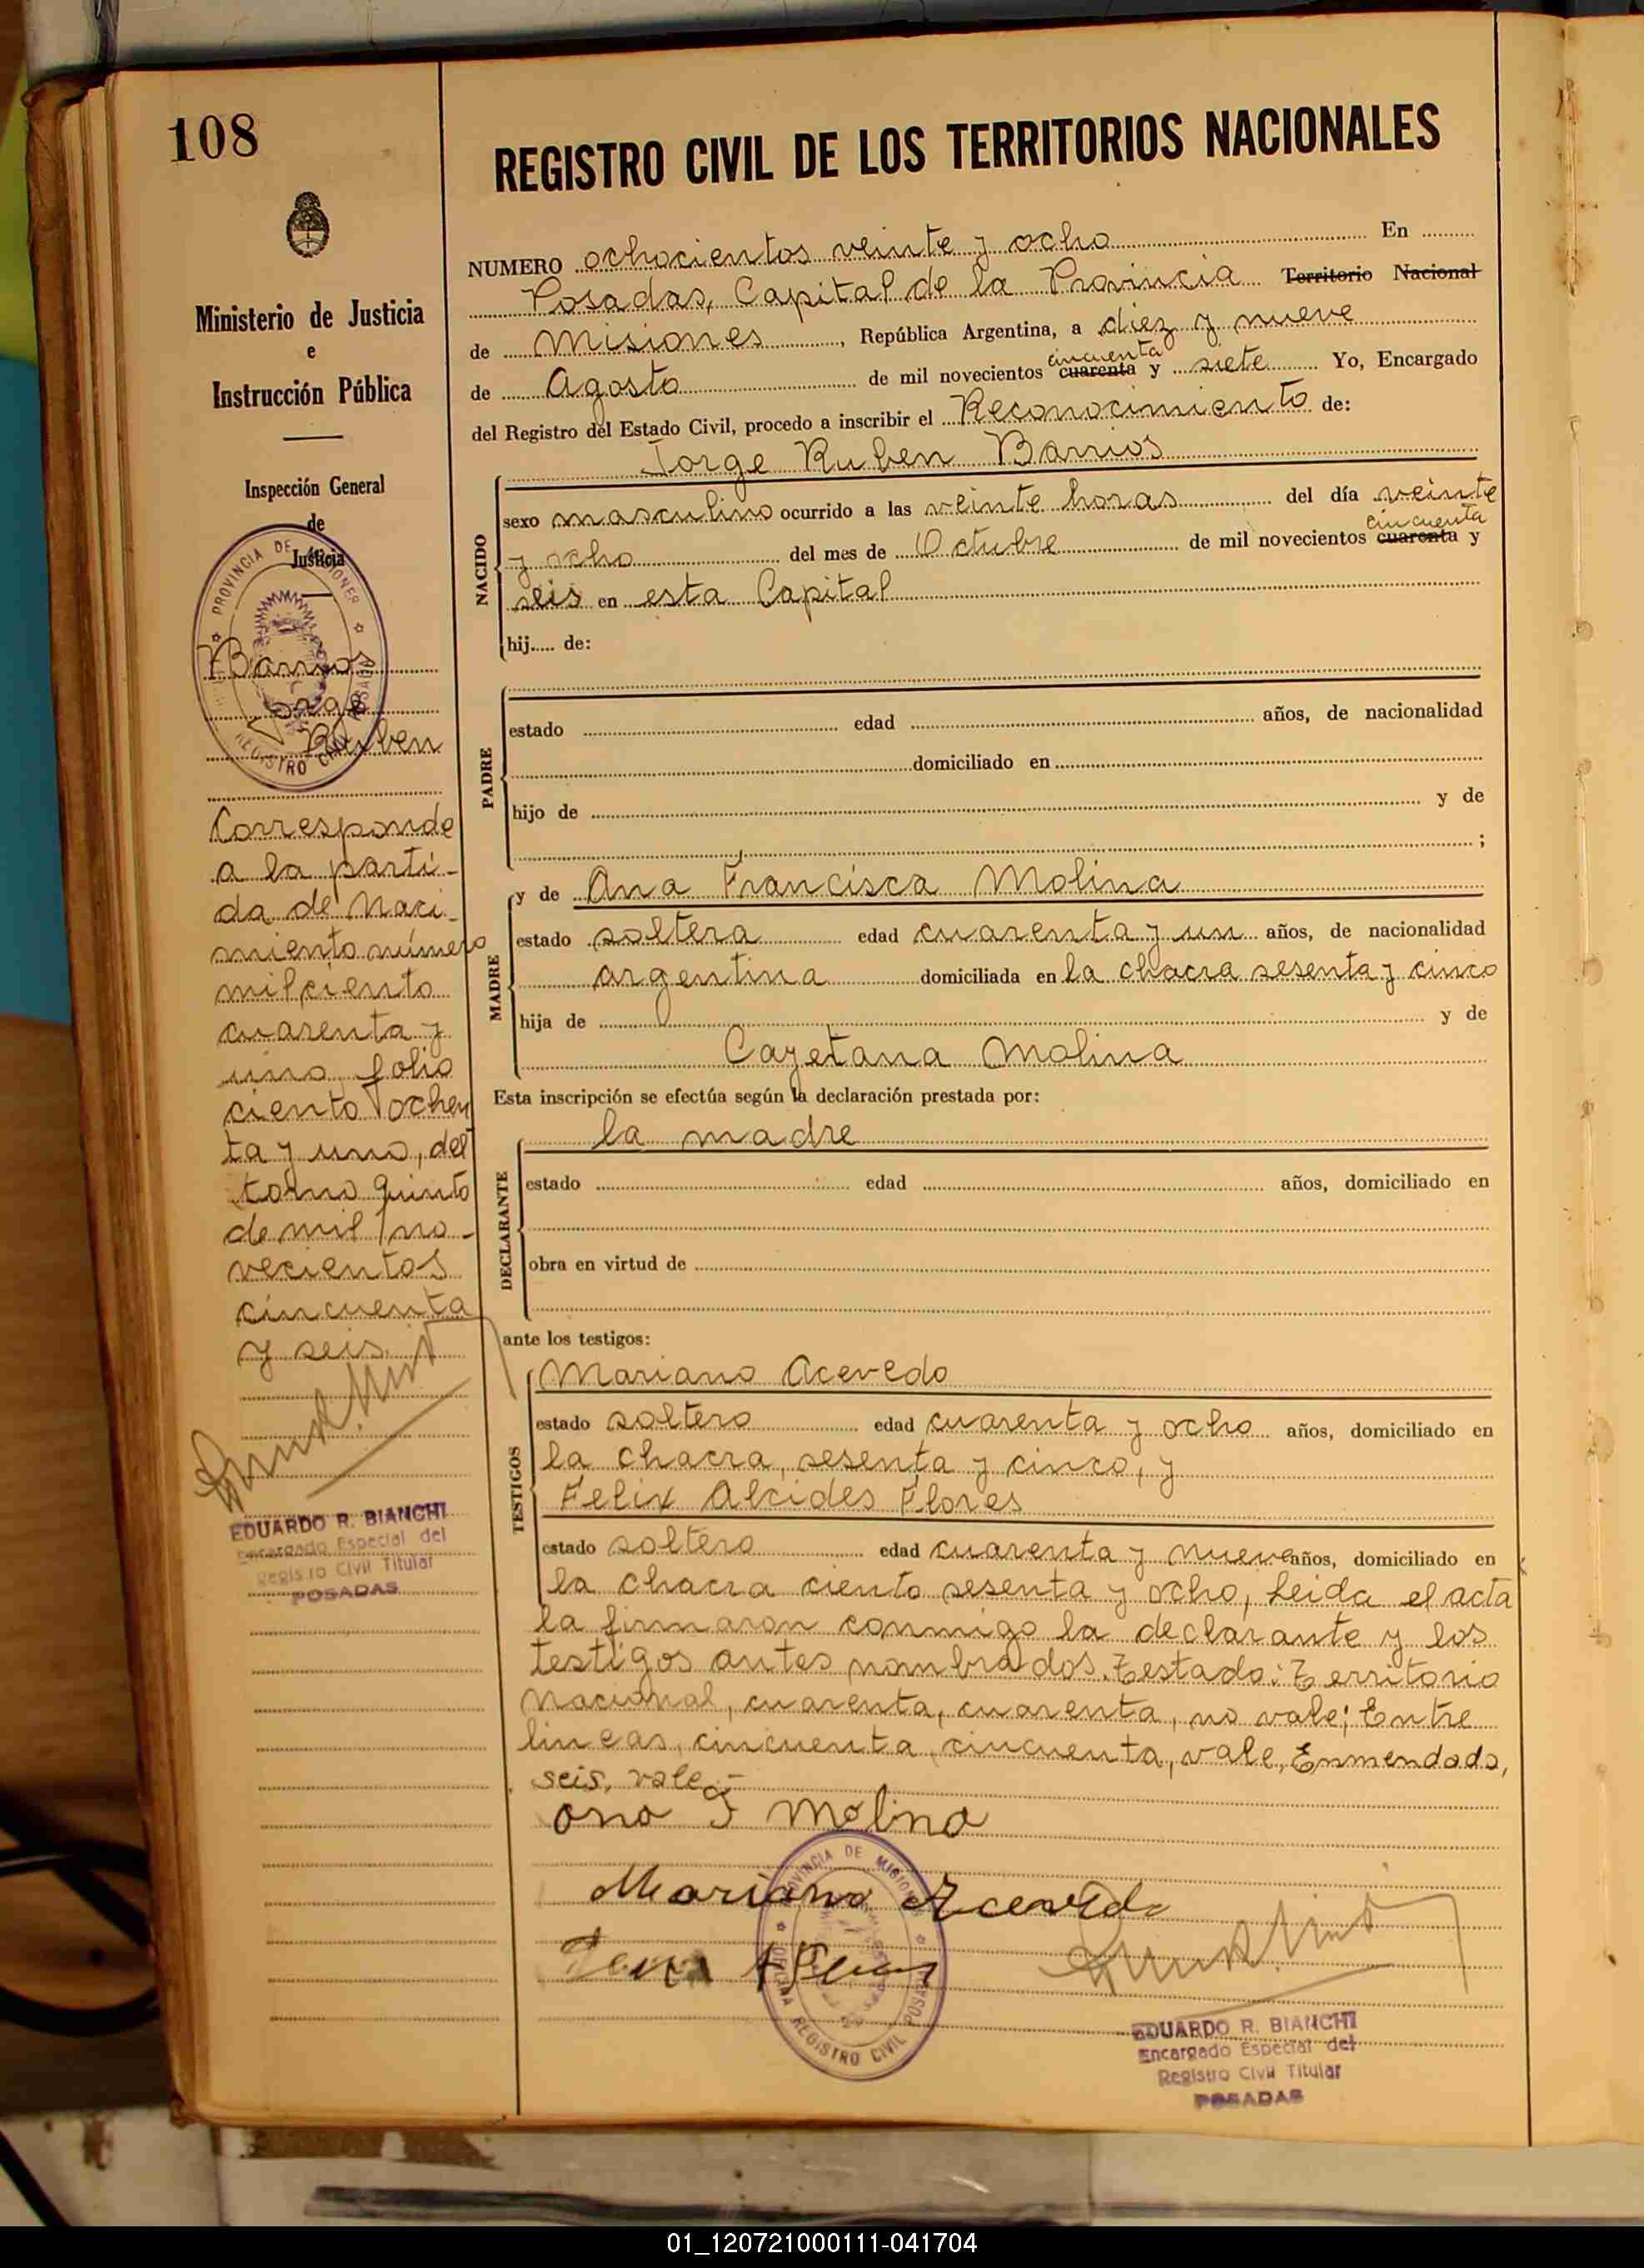 108
Ministerio de Justicia
e
Instrucción Pública
Inspección General
de
Justicia
PROVINCIA DE MISIONES
REGISTRO CIVIL POSADAS
Barrios
Jorge
Ruben
Corresponde
a la parti-
da de Naci-
miento número
mil ciento
cuarenta y
uno, folio
ciento ochen
ta y uno, del
tomo quinto
de mil no-
vecientos
cincuenta
y seis.
EDUARDO R. BIANCHI
Encargado Especial del
Registro Civil Titular
POSADAS
REGISTRO CIVIL DE LOS TERRITORIOS NACIONALES
NUMERO ochocientos veinte y ocho En
Posadas, Capital de la Provincia Territorio Nacional
de Misiones, República Argentina, a diez y nueve
cincuenta
de Agosto de mil novecientos cuarenta y siete Yo, Encargado
del Registro del Estado Civil, procedo a inscribir el Reconocimiento de:
Jorge Ruben Barrios
NACIDO
sexo masculino ocurrido a las veinte horas del día veinte
cincuenta
y ocho del mes de Octubre de mil novecientos cuarenta y
seis en esta Capital
hij..... de:
PADRE
estado edad años, de nacionalidad
domiciliado en
hijo de y de
;
MADRE
y de Ana Francisca Molina
estado soltera edad cuarenta y un años, de nacionalidad
argentina domiciliada en la chacra sesenta y cinco
hija de y de
Cayetana Molina
Esta inscripción se efectúa según la declaración prestada por:
DECLARANTE
la madre
estado edad años, domiciliado en
obra en virtud de
ante los testigos:
TESTIGOS
Mariano Acevedo
estado soltero edad cuarenta y ocho años, domiciliado en
la chacra, sesenta y cinco, y
Felix Alcides Flores
estado soltero edad cuarenta y nueve años, domiciliado en
la chacra ciento sesenta y ocho, Leida el acta
la firmaron conmigo la declarante y los
testigos antes nombrados. Testado: Territorio
Nacional, cuarenta, cuarenta, no vale; Entre
lineas, cincuenta, cincuenta, vale, Enmendado,
seis, vale.-
Ana F Molina
Mariano Acevedo
PROVINCIA DE MISIONES
OFICINA REGISTRO CIVIL POSADAS
EDUARDO R. BIANCHI
Encargado Especial del
Registro Civil Titular
POSADAS
01_120721000111-041704